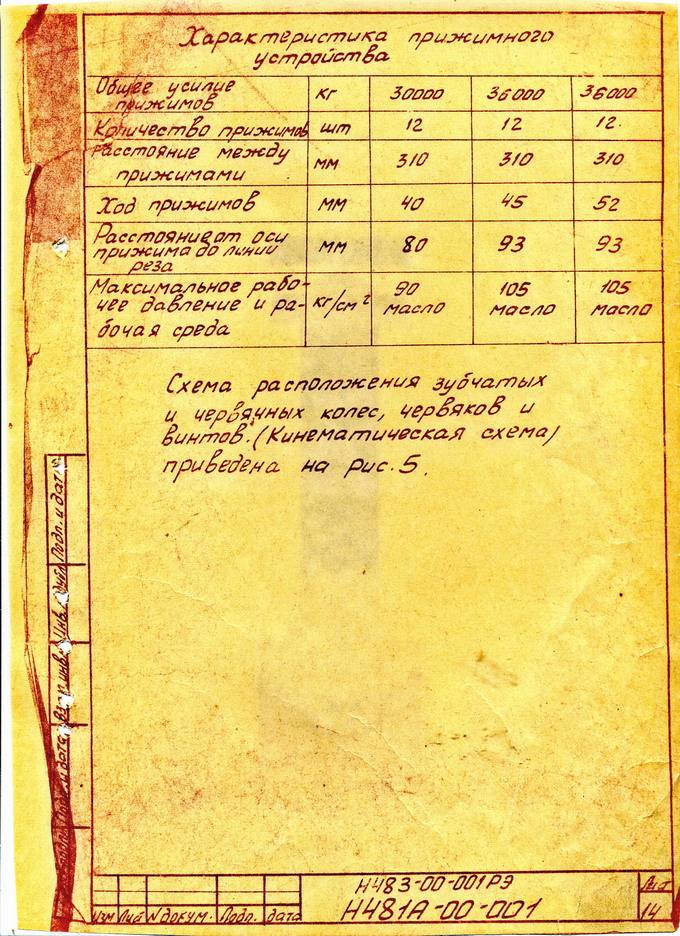 Характеристика прижимного
устройства
Общее усилие
прижимов
кг
30000
36000
36000
Количество прижимов
шт
12
12
12.
Расстояние между
прижимами
мм
310
310
310
Ход прижимов
мм
40
45
52
Расстояние от оси
прижима до линии
реза
мм
80
93
93
Максимальное рабо-
чее давление и ра-
бочая среда
кг/см²
90
масло
105
масло
105
масло
Схема расположения зубчатых
и червячных колес, червяков и
винтов. (Кинематическая схема)
приведена на рис. 5.
Подп. и дата
Инв.
инв.
и дата
Изм Лист N докум. Подп. дата
Н483-00-001РЭ
Н481А-00-001
Лист
14